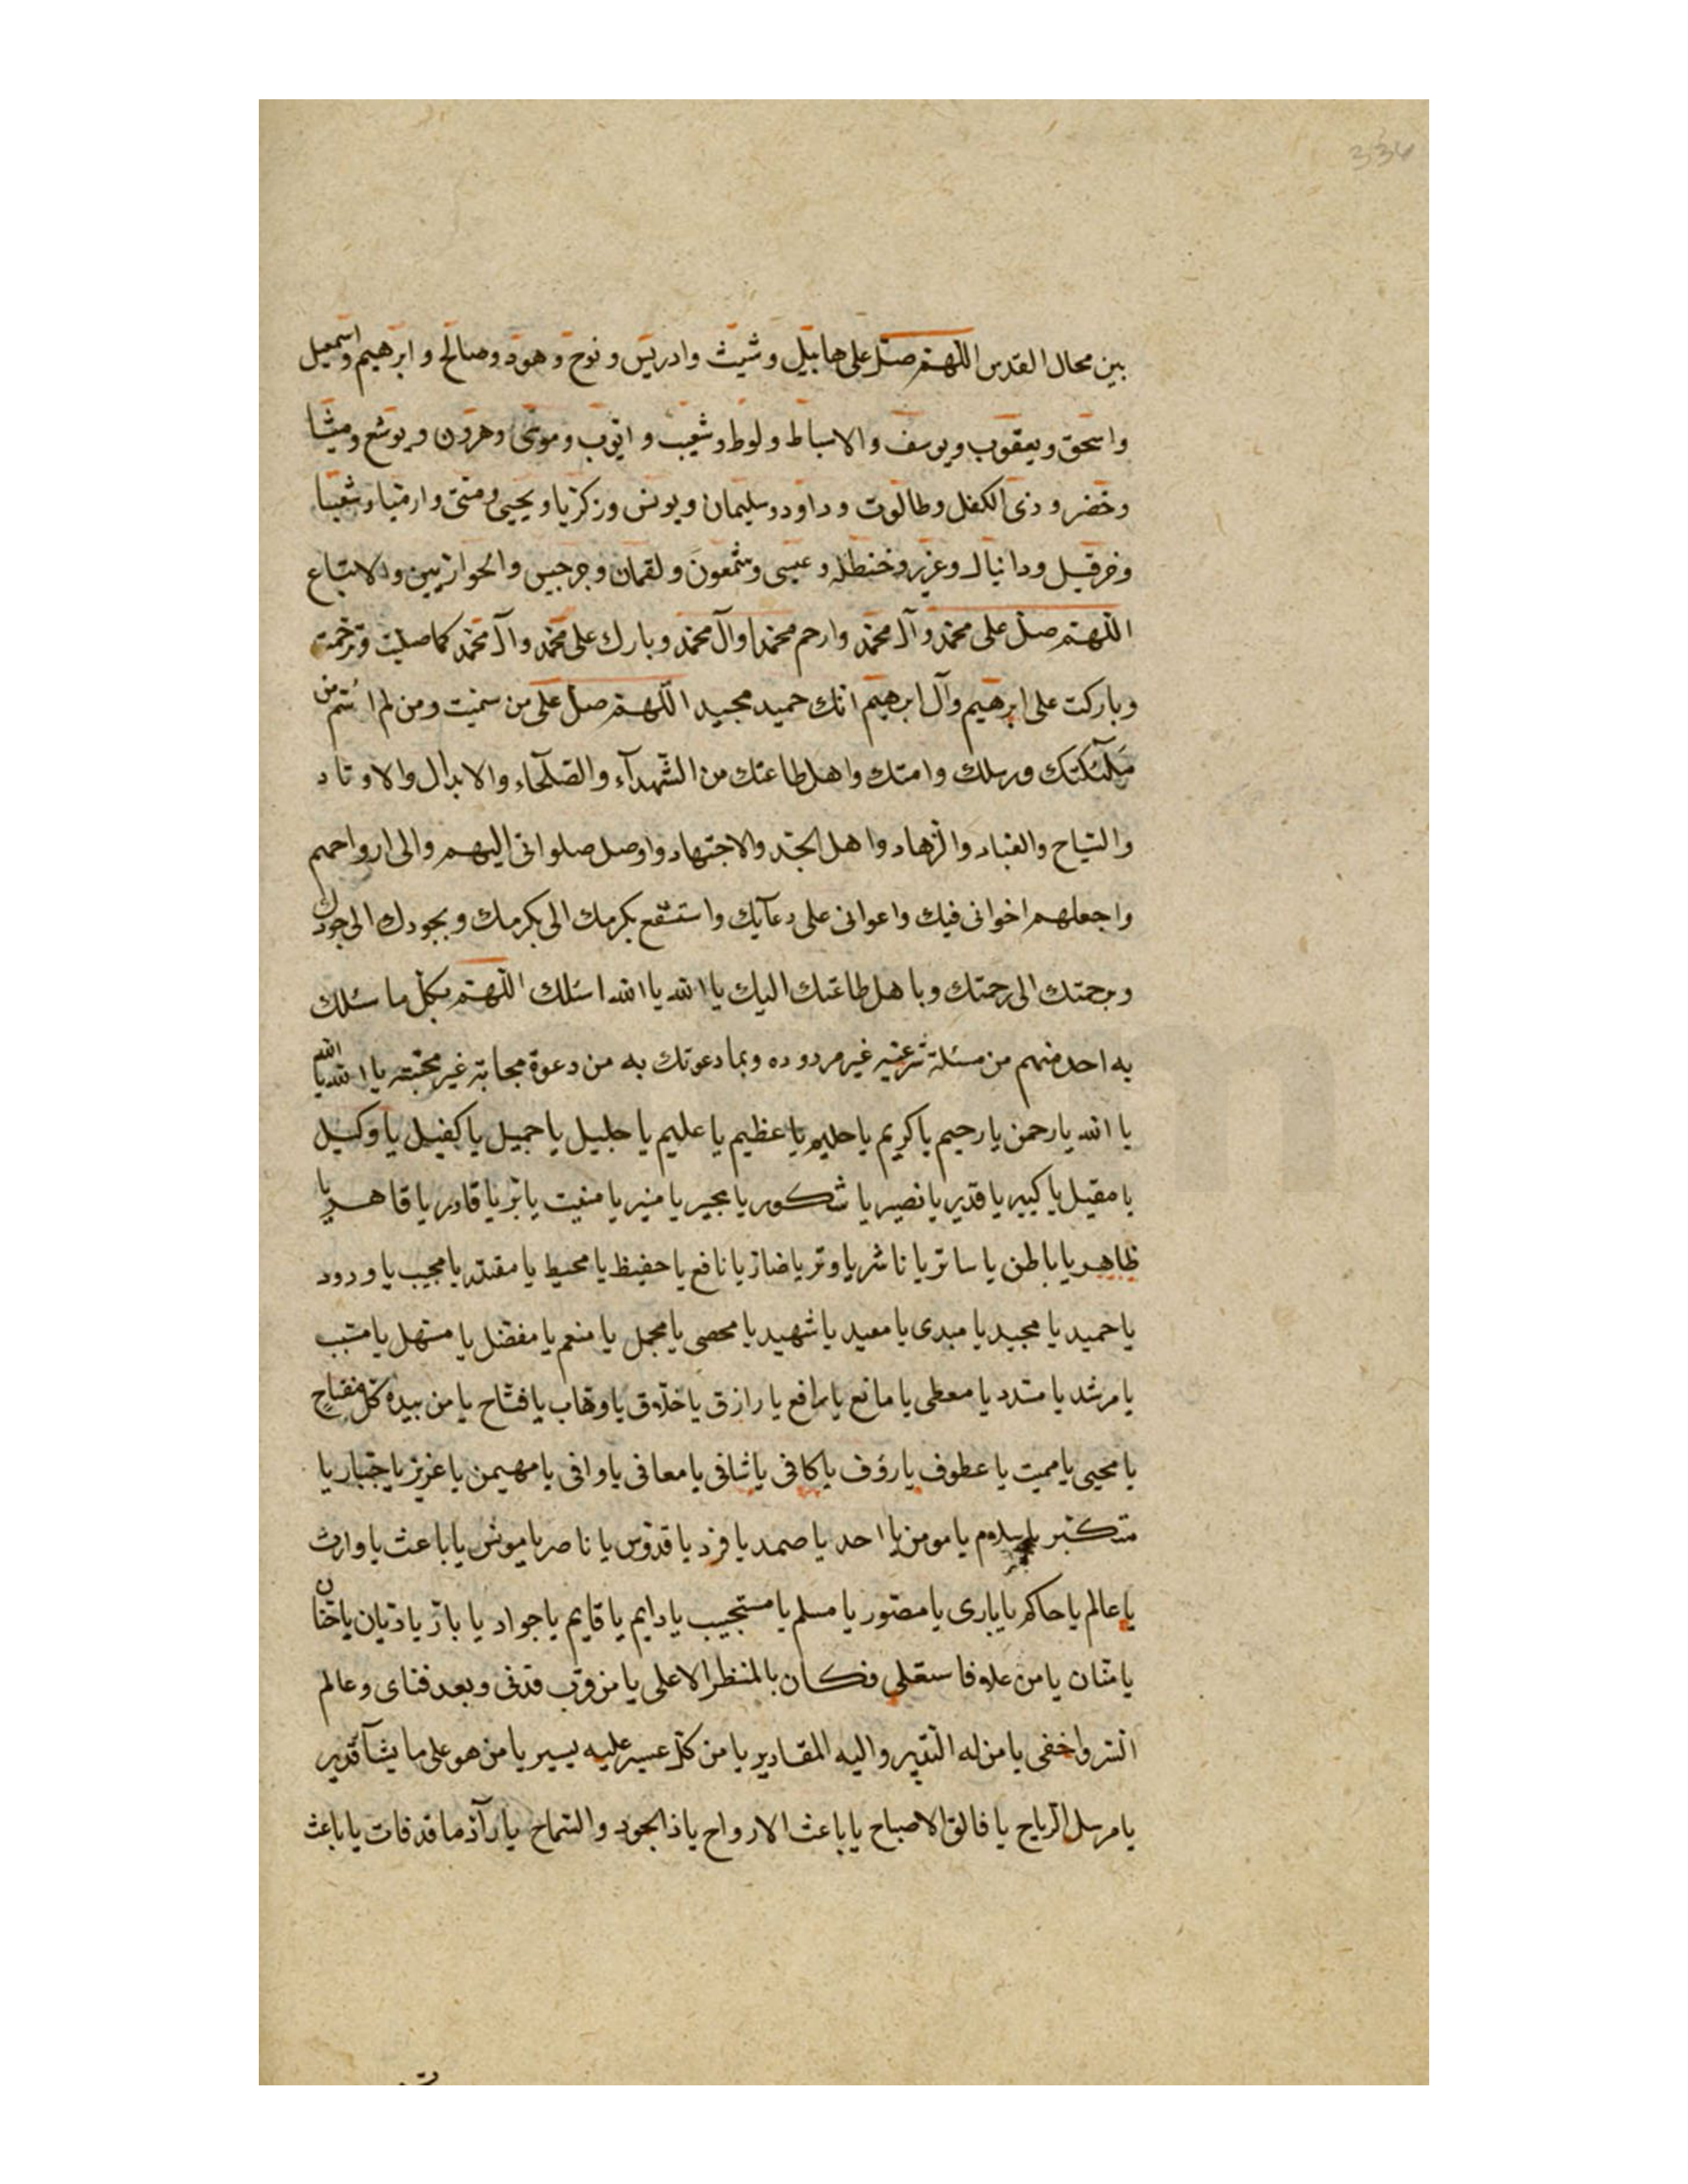 336
بين محال القدس اللهم صل على هابيل وشيث وادريس ونوح وهود وصالح وابرهيم واسمعيل
واسحق ويعقوب ويوسف والاسباط ولوط وشعيب وايوب وموسى وهرون ويوشع وميشا
وخضر وذى الكفل وطالوت وداود وسليمان ويونس وزكريا ويحيى ومتى وارميا وشعيا
وخرقيل ودانيال وعزير وخنطله وعيسى وشمعون ولقمان وجرجيس والحواريين والاتباع
اللهم صل على محمد وآل محمد وارحم محمدا وآل محمد وبارك على محمد وآل محمد كما صليت وترحمت
وباركت على ابرهيم وآل ابرهيم انك حميد مجيد اللهم صل على من سميت ومن لم اسم من
ملئكتك ورسلك وامتك واهل طاعتك من الشهدآء والصلحآء والابدال والاوتاد
والسياح والعباد والزهاد واهل الجد والاجتهاد واوصل صلواتى اليهم والى ارواحهم
واجعلهم اخوانى فيك واعوانى على دعآيك واستشفع بكرمك الى كرمك وبجودك الى جودك
وبرحمتك الى رحمتك وباهل طاعتك اليك يا الله يا الله اسئلك اللهم بكل ما سئلك
به احد منهم من مسئلة شرعيه غير مردوده وبما دعوتك به من دعوة مجابة غير مخيبه يا الله يا الله
يا الله يا رحمن يا رحيم يا كريم يا حليم يا عظيم يا عليم يا جليل يا جميل يا كفيل يا وكيل
يا مقيل يا كبير يا قدير يا نصير يا شكور يا مجير يا منير يا مغيث يا بر يا قادر يا قاهر يا
ظاهر يا باطن يا ساتر يا ناشر يا وتر يا ضار يا نافع يا حفيظ يا محيط يا مقتدر يا مجيب يا ودود
يا حميد يا مجيد يا مبدى يا معيد يا شهيد يا محصى يا مجمل يا منعم يا مفضل يا مسهل يا مسبب
يا مرشد يا مسدد يا معطى يا مانع يا رافع يا رازق يا خلاق يا وهاب يا فتاح يا من بيده كل مفتاح
يا محيى يا مميت يا عطوف يا رؤف يا كافى يا شافى يا معافى يا وافى يا مهيمن يا عزيز يا جبار يا
متكبر يا سلام يا مومن يا احد يا صمد يا فرد يا قدوس يا ناصر يا مونس يا باعث يا وارث
يا عالم يا حاكم يا بارى يا مصور يا مسلم يا مستجيب يا دايم يا قايم يا جواد يا بار يا ديان يا حنان
يا منان يا من علا فاستعلى فكان بالمنظر الاعلى يا من قرب فدنى وبعد فناى وعالم
السر واخفى يا من له التدبير واليه المقادير يا من كل عسير عليه يسير يا من هو على ما يشآ قدير
يا مرسل الرياح يا فالق الاصباح يا باعث الارواح يا ذا الجود والسماح يا رآد ما قد فات يا باعث